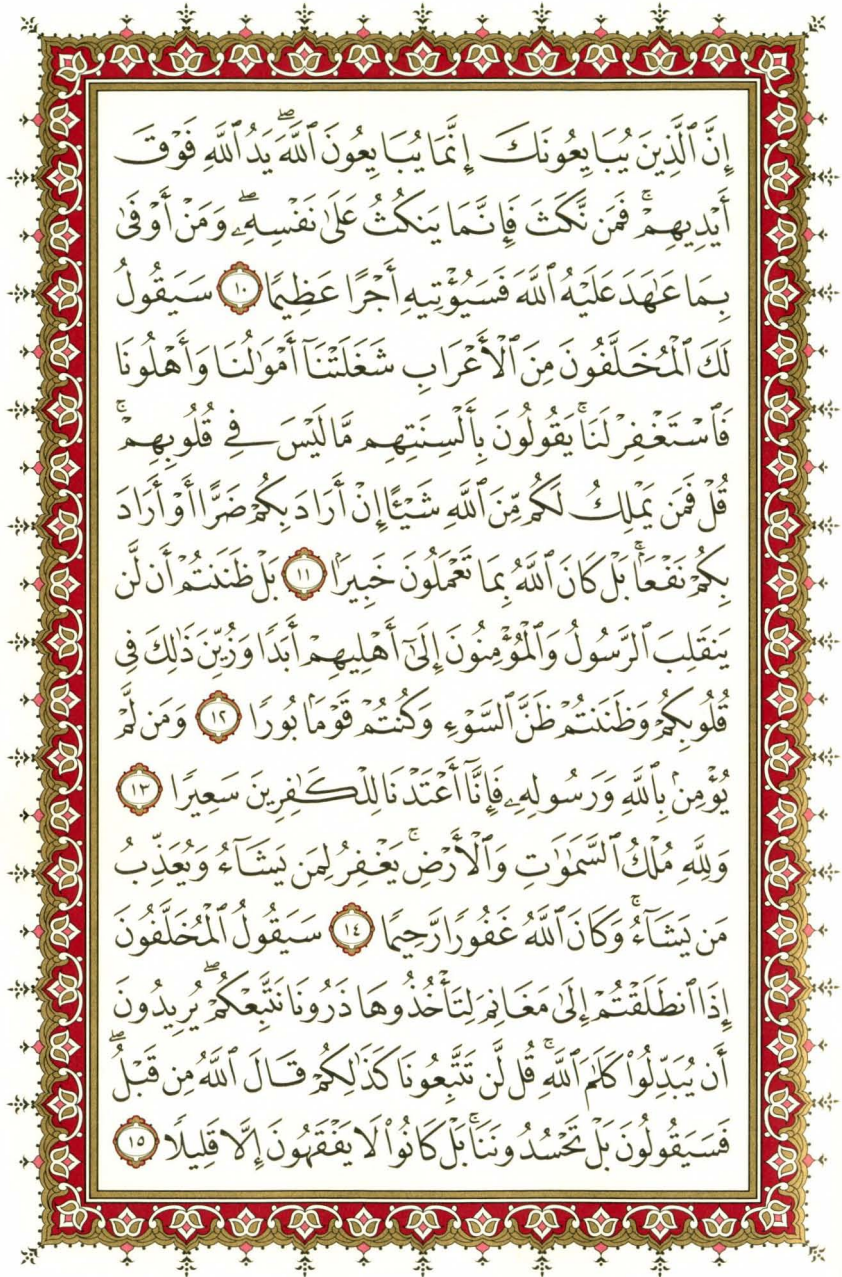 إِنَّ ٱلَّذِينَ يُبَايِعُونَكَ إِنَّمَا يُبَايِعُونَ ٱللَّهَ ۖ يَدُ ٱللَّهِ فَوْقَ
أَيْدِيهِمْ ۚ فَمَن نَّكَثَ فَإِنَّمَا يَنكُثُ عَلَىٰ نَفْسِهِۦ ۖ وَمَنْ أَوْفَىٰ
بِمَا عَـٰهَدَ عَلَيْهُ ٱللَّهَ فَسَيُؤْتِيهِ أَجْرًا عَظِيمًا ١٠ سَيَقُولُ
لَكَ ٱلْمُخَلَّفُونَ مِنَ ٱلْأَعْرَابِ شَغَلَتْنَآ أَمْوَٰلُنَا وَأَهْلُونَا
فَٱسْتَغْفِرْ لَنَا ۚ يَقُولُونَ بِأَلْسِنَتِهِم مَّا لَيْسَ فِى قُلُوبِهِمْ ۚ
قُلْ فَمَن يَمْلِكُ لَكُم مِّنَ ٱللَّهِ شَيْـًٔا إِنْ أَرَادَ بِكُمْ ضَرًّا أَوْ أَرَادَ
بِكُمْ نَفْعًۢا ۚ بَلْ كَانَ ٱللَّهُ بِمَا تَعْمَلُونَ خَبِيرًۢا ١١ بَلْ ظَنَنتُمْ أَن لَّن
يَنقَلِبَ ٱلرَّسُولُ وَٱلْمُؤْمِنُونَ إِلَىٰٓ أَهْلِيهِمْ أَبَدًا وَزُيِّنَ ذَٰلِكَ فِى
قُلُوبِكُمْ وَظَنَنتُمْ ظَنَّ ٱلسَّوْءِ وَكُنتُمْ قَوْمًۢا بُورًا ١٢ وَمَن لَّمْ
يُؤْمِنۢ بِٱللَّهِ وَرَسُولِهِۦ فَإِنَّآ أَعْتَدْنَا لِلْكَـٰفِرِينَ سَعِيرًا ١٣
وَلِلَّهِ مُلْكُ ٱلسَّمَـٰوَٰتِ وَٱلْأَرْضِ ۚ يَغْفِرُ لِمَن يَشَآءُ وَيُعَذِّبُ
مَن يَشَآءُ ۚ وَكَانَ ٱللَّهُ غَفُورًا رَّحِيمًا ١٤ سَيَقُولُ ٱلْمُخَلَّفُونَ
إِذَا ٱنطَلَقْتُمْ إِلَىٰ مَغَانِمَ لِتَأْخُذُوهَا ذَرُونَا نَتَّبِعْكُمْ ۖ يُرِيدُونَ
أَن يُبَدِّلُوا۟ كَلَـٰمَ ٱللَّهِ ۚ قُل لَّن تَتَّبِعُونَا كَذَٰلِكُمْ قَالَ ٱللَّهُ مِن قَبْلُ ۖ
فَسَيَقُولُونَ بَلْ تَحْسُدُونَنَا ۚ بَلْ كَانُوا۟ لَا يَفْقَهُونَ إِلَّا قَلِيلًا ١٥